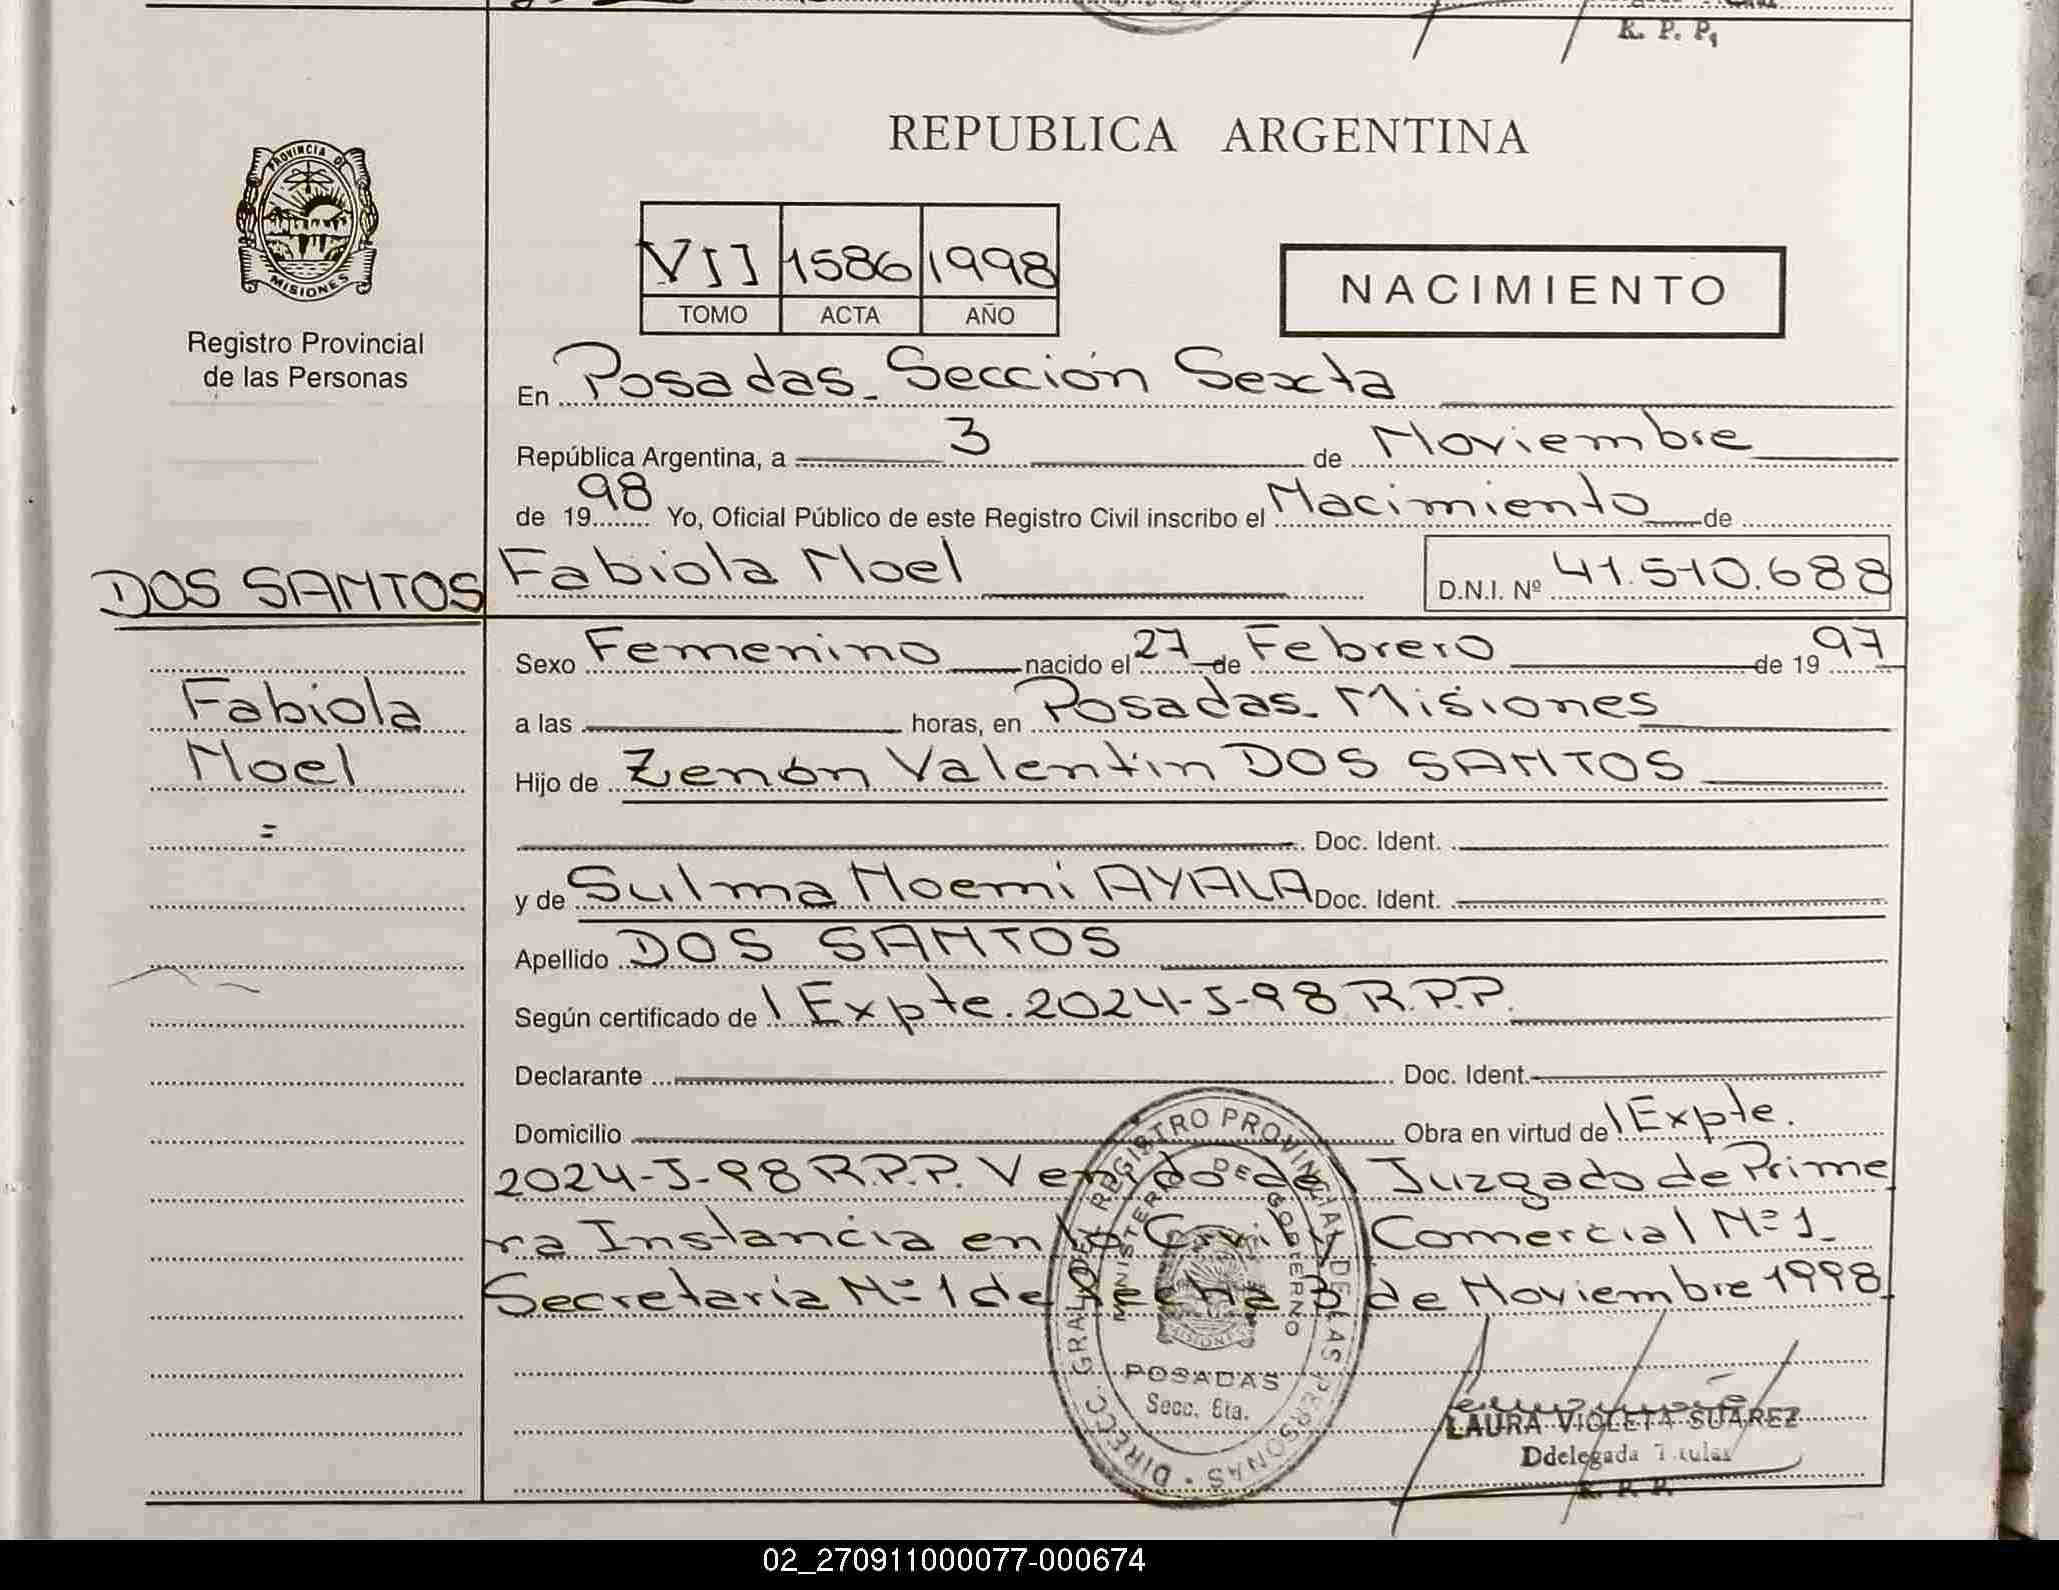 K. P. P.
REPUBLICA ARGENTINA
PROVINCIA DE MISIONES
Registro Provincial
de las Personas
VII 1586 1998
TOMO ACTA AÑO
NACIMIENTO
En Posadas - Sección Sexta
República Argentina, a 3 de Noviembre
de 1998 Yo, Oficial Público de este Registro Civil inscribo el Nacimiento de
DOS SANTOS Fabiola Noel D.N.I. Nº 41.510.688
Sexo Femenino nacido el 27 de Febrero de 1997
Fabiola
a las horas, en Posadas - Misiones
Noel
Hijo de Zenón Valentin DOS SANTOS
=
Doc. Ident.
y de Sulma Noemi AYALA Doc. Ident.
Apellido DOS SANTOS
Según certificado de | Expte. 2024-J-98 R.P.P.
Declarante Doc. Ident.
Domicilio Obra en virtud de | Expte.
2024-J-98 R.P.P. Venido del Juzgado de Prime
ra Instancia en lo Civil y Comercial Nº 1 -
Secretaria Nº 1 de fecha 3 de Noviembre 1998
DIRECC. GRAL. DEL REGISTRO PROVINCIAL DE LAS PERSONAS
MINISTERIO DE GOBIERNO
MISIONES
POSADAS
Secc. 6ta.
LAURA VIOLETA SUAREZ
Ddelegada Titular
R. P. P.
02_270911000077-000674